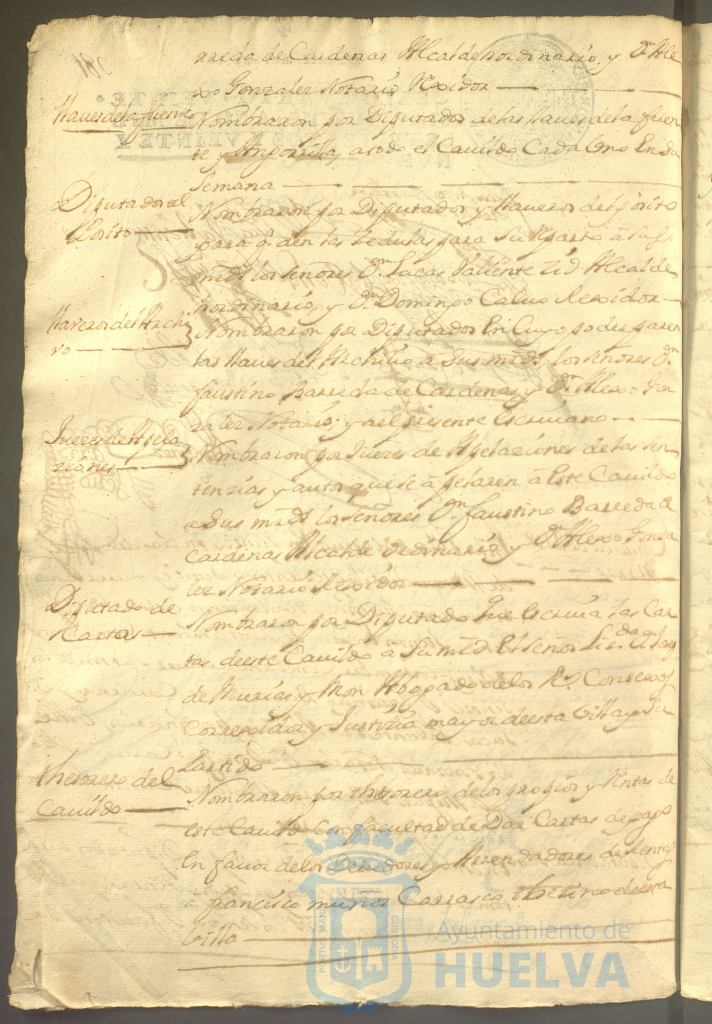 rreda de Cardenas Alcalde hordinario, y Dn Ale
xo Gonzalez Notario Rexidor
Llaves de la fuente
Nombraron por Diputados de las llaves de la fuen
te y a todo el Cavildo Cada Uno En Su
Semana
Diputados al
Posito
Nombraron por Diputador y llaveros del pósito
para q. den las Zedulas para Su Reparto á
mrds los señores Dn Lucas Valiente Zid Alcalde
hordinario, y Dn Domingo Calvo Rexidor
Llaveros del Archi
vo
Nombraron por Diputados En Cuyo poder paren
las llaves del Archivo a Sus mrds los señores Dn
faustino Barreda de Cardenas y Dn Alexo Gon
zalez Notario, y a el presente Escrivano
Jueces de Apela
ziones
Nombraron por Jueces de Apelaziones de las sen
tenzias y autos que se apelaren á Este Cavildo
a Sus mrds los señores Dn faustino Barreda de
Cardenas Alcalde ordinario y Dn Alexo Gonza
lez Notario Rexidor
Diputado de
Cartas
Nombraron por Diputado que Escriva las Car
tas de este Cavildo a Su mrd El señor Lizdo Dn
de Murias y Mon Abogado de los Rs. Consexos
Correxidor y Justicia mayor de esta Villa y Su
Partido
thesorero del
Cavildo
Nombraron por thesorero de los propios y Rentas de
este Cavildo Con facultad de Dar Cartas de pago
En favor de los Deudores y Arrendadores de Rentas
á francisco muñoz Carrasco de esta
Villa
PORTUS MARIS
ET TERRAE
CUSTODIA
Ayuntamiento de
HUELVA